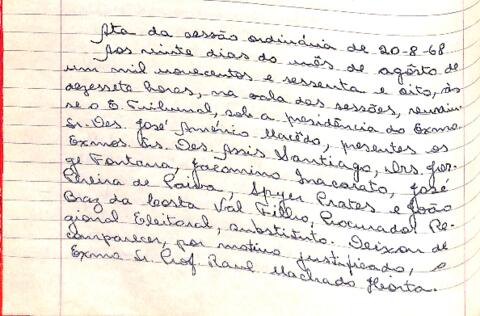 Ata da sessão ordinária de 20-8-68
Aos vinte dias do mês de agôsto de
um mil novecentos e sessenta e oito, às
dezessete horas, na sala das sessões, reuniu-
se o E. Tribunal, sob a presidência do Exmo.
Sr. Des. José Américo Macêdo, presentes os
Exmos. Srs. Des. Assis Santiago, Drs. Jor-
ge Fontana, Jacomino Inacarato, José
Pereira de Paiva, Spyer Prates e João
Braz da Costa Val Filho, Procurador Re-
gional Eleitoral, substituto. Deixou de
comparecer, por motivo justificado, o
Exmo Sr. Prof. Raul Machado Horta.